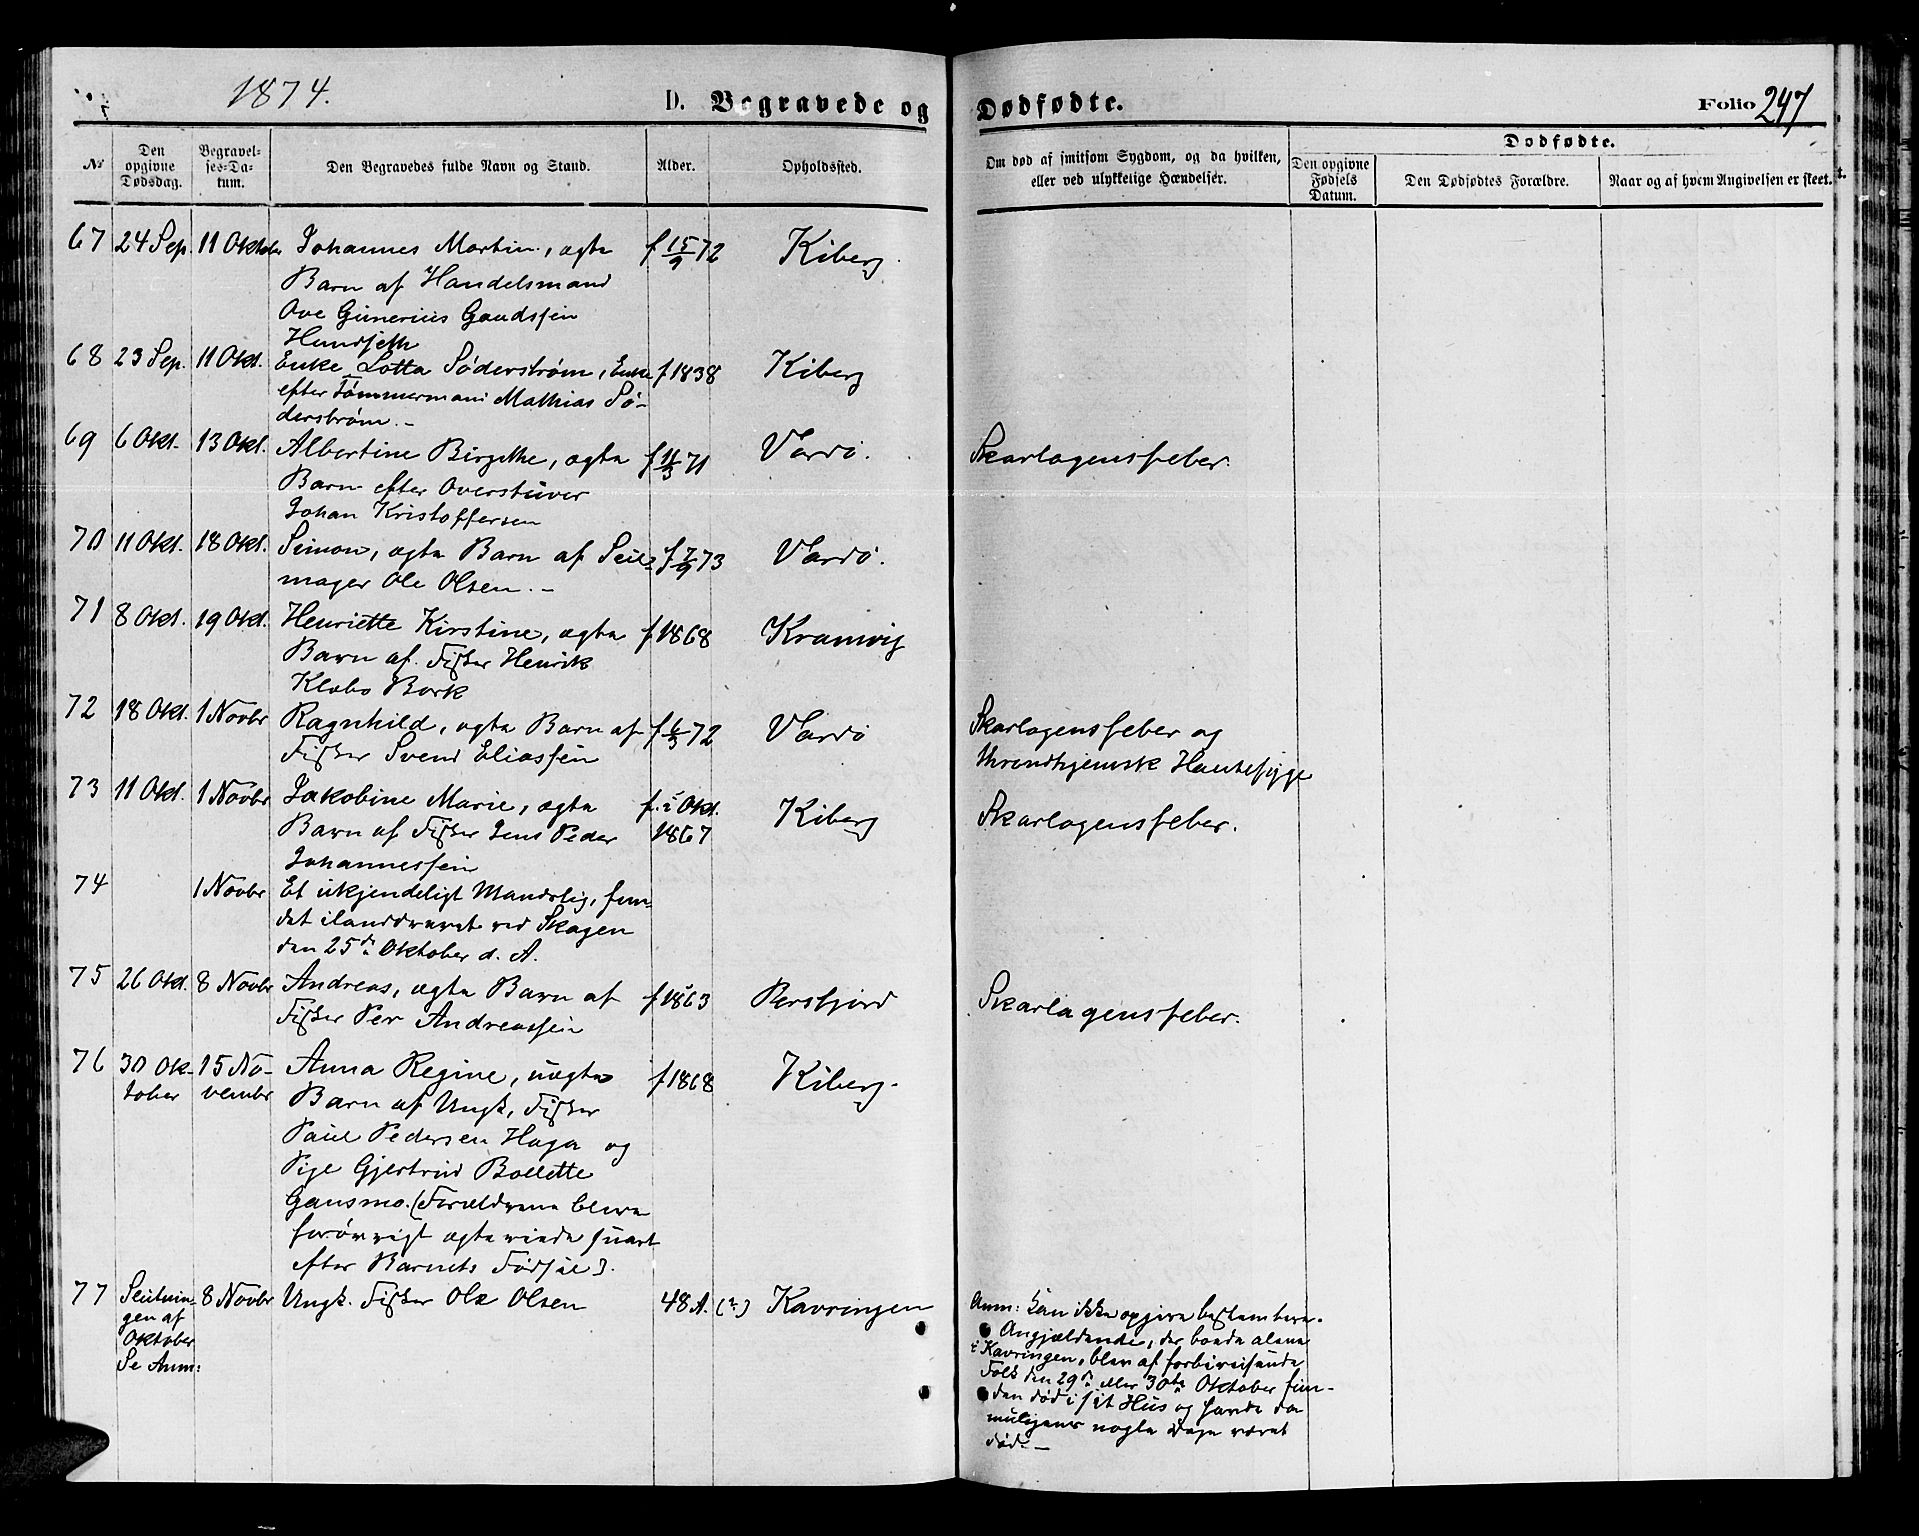 1874.
D. Begravede og
Dødfødte.
Folio 247
Dødfødte.
№
Den opgivne Dødsdag.
Begravelses-Datum.
Den Begravedes fulde Navn og Stand.
Alder.
Opholdssted.
Om død af smitsom Sygdom, og da hvilken,
eller ved ulykkelige Hændelser.
Den opgivne Fødsels Datum.
Den Dødfødtes Forældre.
Naar og af hvem Angivelsen er skeet.
67 24 Sep. 11 Oktober Johannes Martin, ægte f 15/9 72 Kiberg.
Barn af Handelsmand
Ove Gunerius Gaudssen
68 23 Sep. 11 Okt. Enke Lotta Søderstrøm, Enke f 1838 Kiberg
efter Tømmermand Mathias Sø-
derstrøm.-
69 6 Okt. 13 Okt. Albertine Birgithe, ægte f 11/3 71 Vardø. Skarlagensfeber.
Barn efter Overstuver
Johan Kristoffersen
70 11 Okt. 18 Okt. Simon, ægte Barn af Seil- f 7/9 73 Vardø.
mager Ole Olsen.-
71 8 Okt. 19 Okt. Henriette Kirstine, ægte f. 1868 Kramvig
Barn af Fisker Henrik
Klabo Bork
72 18 Okt. 1 Novbr Ragnhild, ægte Barn af f 6/3 72 Vardø Skarlagensfeber og
Fisker Svend Eliassen throndhjemsk Hautesyge
73 11 Okt. 1 Novbr Jakobine Marie, ægte f. i Okt. Kiberg Skarlagensfeber.
Barn af Fisker Jens Peder 1867
Johannessen
74 1 Novbr Et ukjendeligt Mandslig, fun-
det ilanddrevet ved Skagen
den 25de Oktober d. A.
75 26 Okt. 8 Novbr Andreas, ægte Barn af f 1863 Persfjord Skarlagensfeber.
Fisker Per Andreassen
76 30 Ok- 15 No- Anna Regine, uægte f 1868 Kiberg.
tober vembr Barn af Ungk. Fisker
Paul Pedersen Haga og
Pige Gjertrud Bollette
Gausmo. (Forældrene bleve
forøvrigt ægteviede snart
efter Barnets Fødsel).
77 Slutnin- 8 Novbr Ungk. Fisker Ole Olsen 48 A. (?) Kavringen Anm: Kan ikke opgives bestemtere.
gen af Angjældende, der boede alene
Oktober i Kavringen, blev af forbireisende
Se Anm: Folk den 29de eller 30te Oktober fun-
den død i sit Hus og havde da
muligens nogle Dage været
død.-